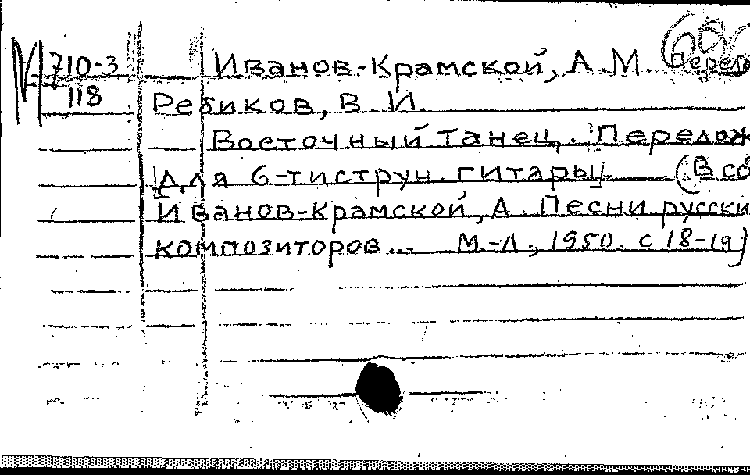 N 710-3 Иванов-Крамской, А. М. перел
118 Ребиков, В. И.
Восточный танец. Перелож
для 6-тиструн. гитары (В сб
Иванов-Крамской, А. Песни русски
композиторов... М.-Л., 1950. с 18-19)